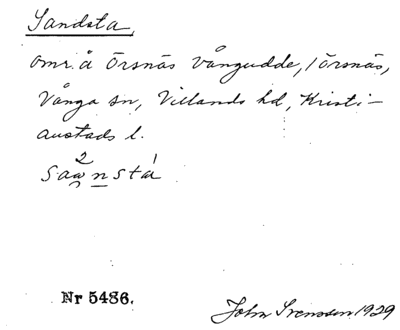 Sandsta,
omr. å Örsnäs Vångudde, i Örsnäs,
Vånga sn, Villands hd, Kristi-
anstads l.
Nr 5486.
John Svensson 1929